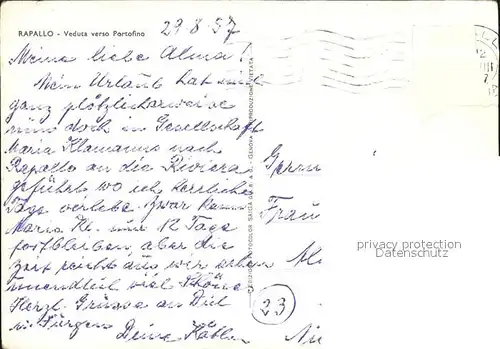 RAPALLO - Veduta verso Portofino
29 8 57
Meine liebe Alma!
Mein Urlaub hat mich
ganz plötzlicherweise
nun doch in Gesellschaft
Maria Klamanns nach
Rapallo an die Riviera
geführt wo ich herrliche
Tage verlebe. Zwar kann
Maria Kl. nur 12 Tage
fortbleiben, aber die
Zeit reicht aus, wir sehen
unendlich viel Schöne
Herzl. Grüsse an Dich
u. Jürgen
Deine Käthe
Frau
23
privacy protection
Datenschutz